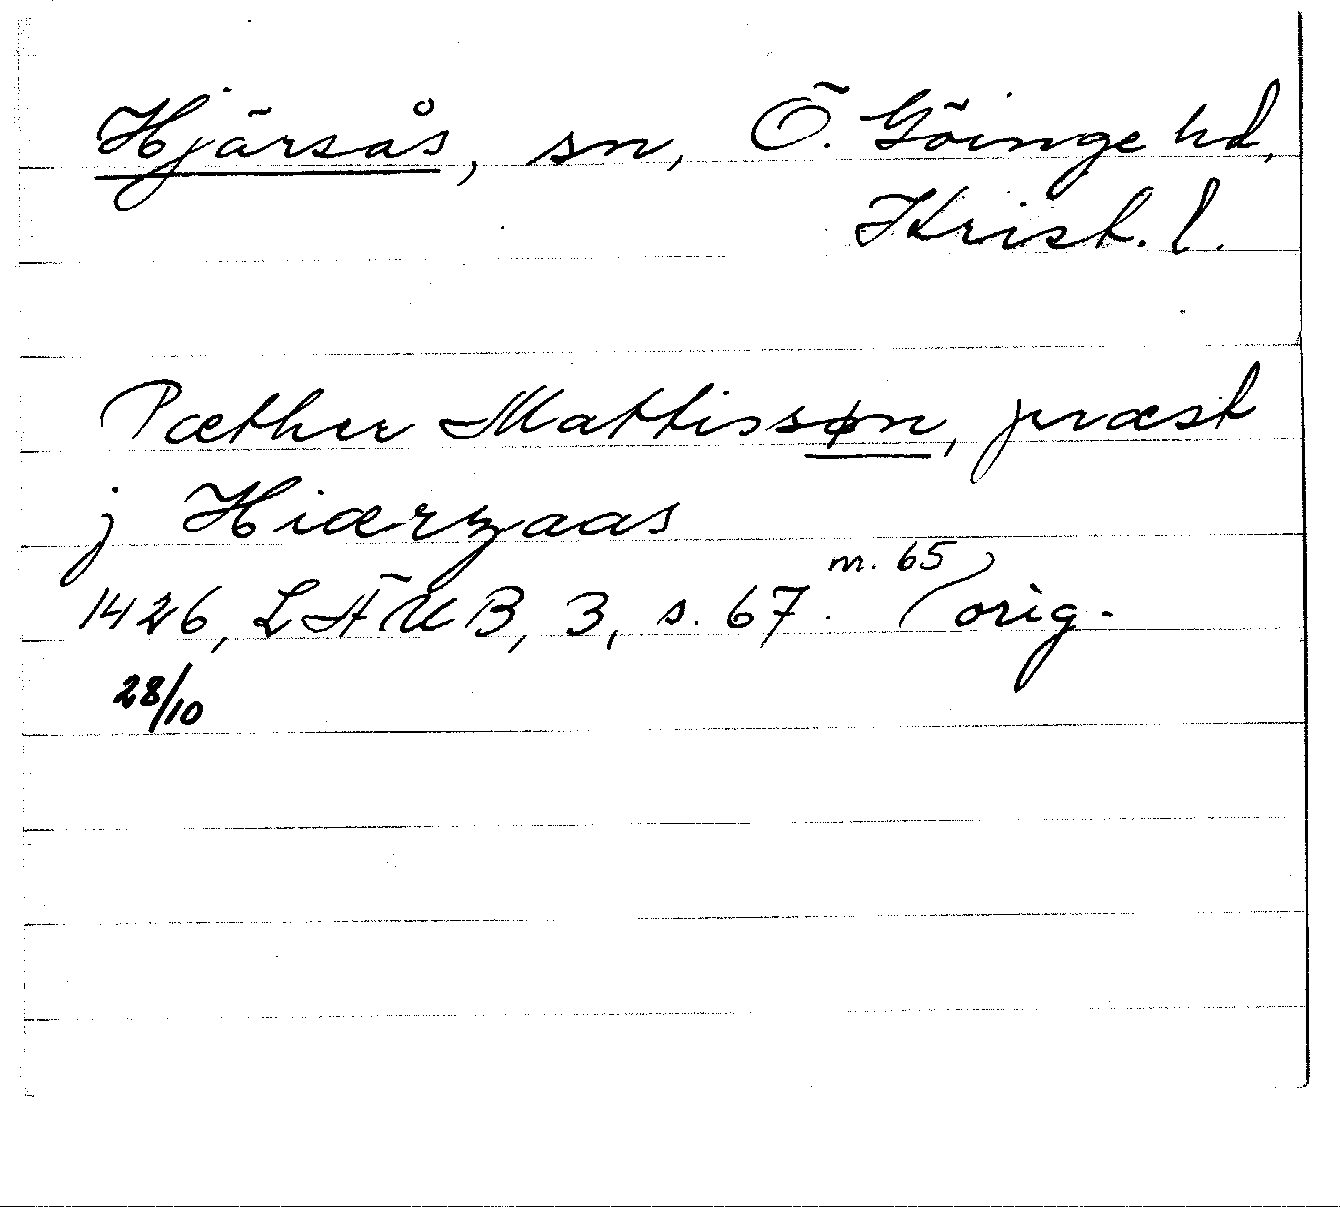 Hjärsås, sn, Ö. Göinge hd,
Krist. l.
Pæther Mattissøn, præst
j Hiærzaas
m. 65
1426, LÄUB, 3, s. 67. orig.
28/10